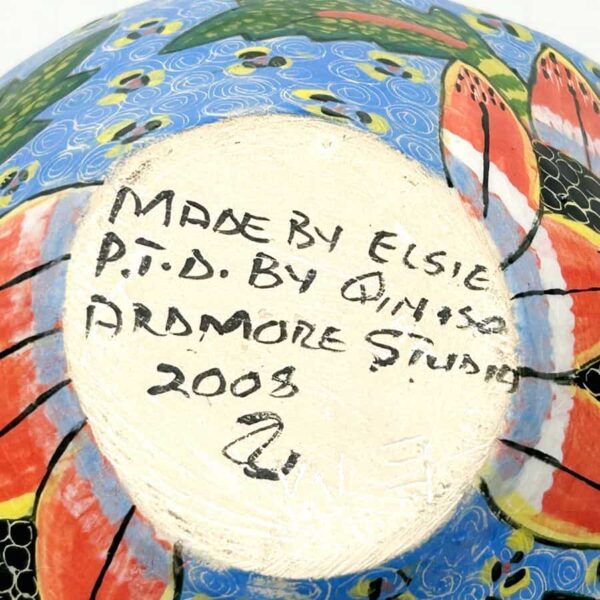 MADE BY ELSIE
P.T.D. BY QINISO
ARDMORE STUDIO
2008